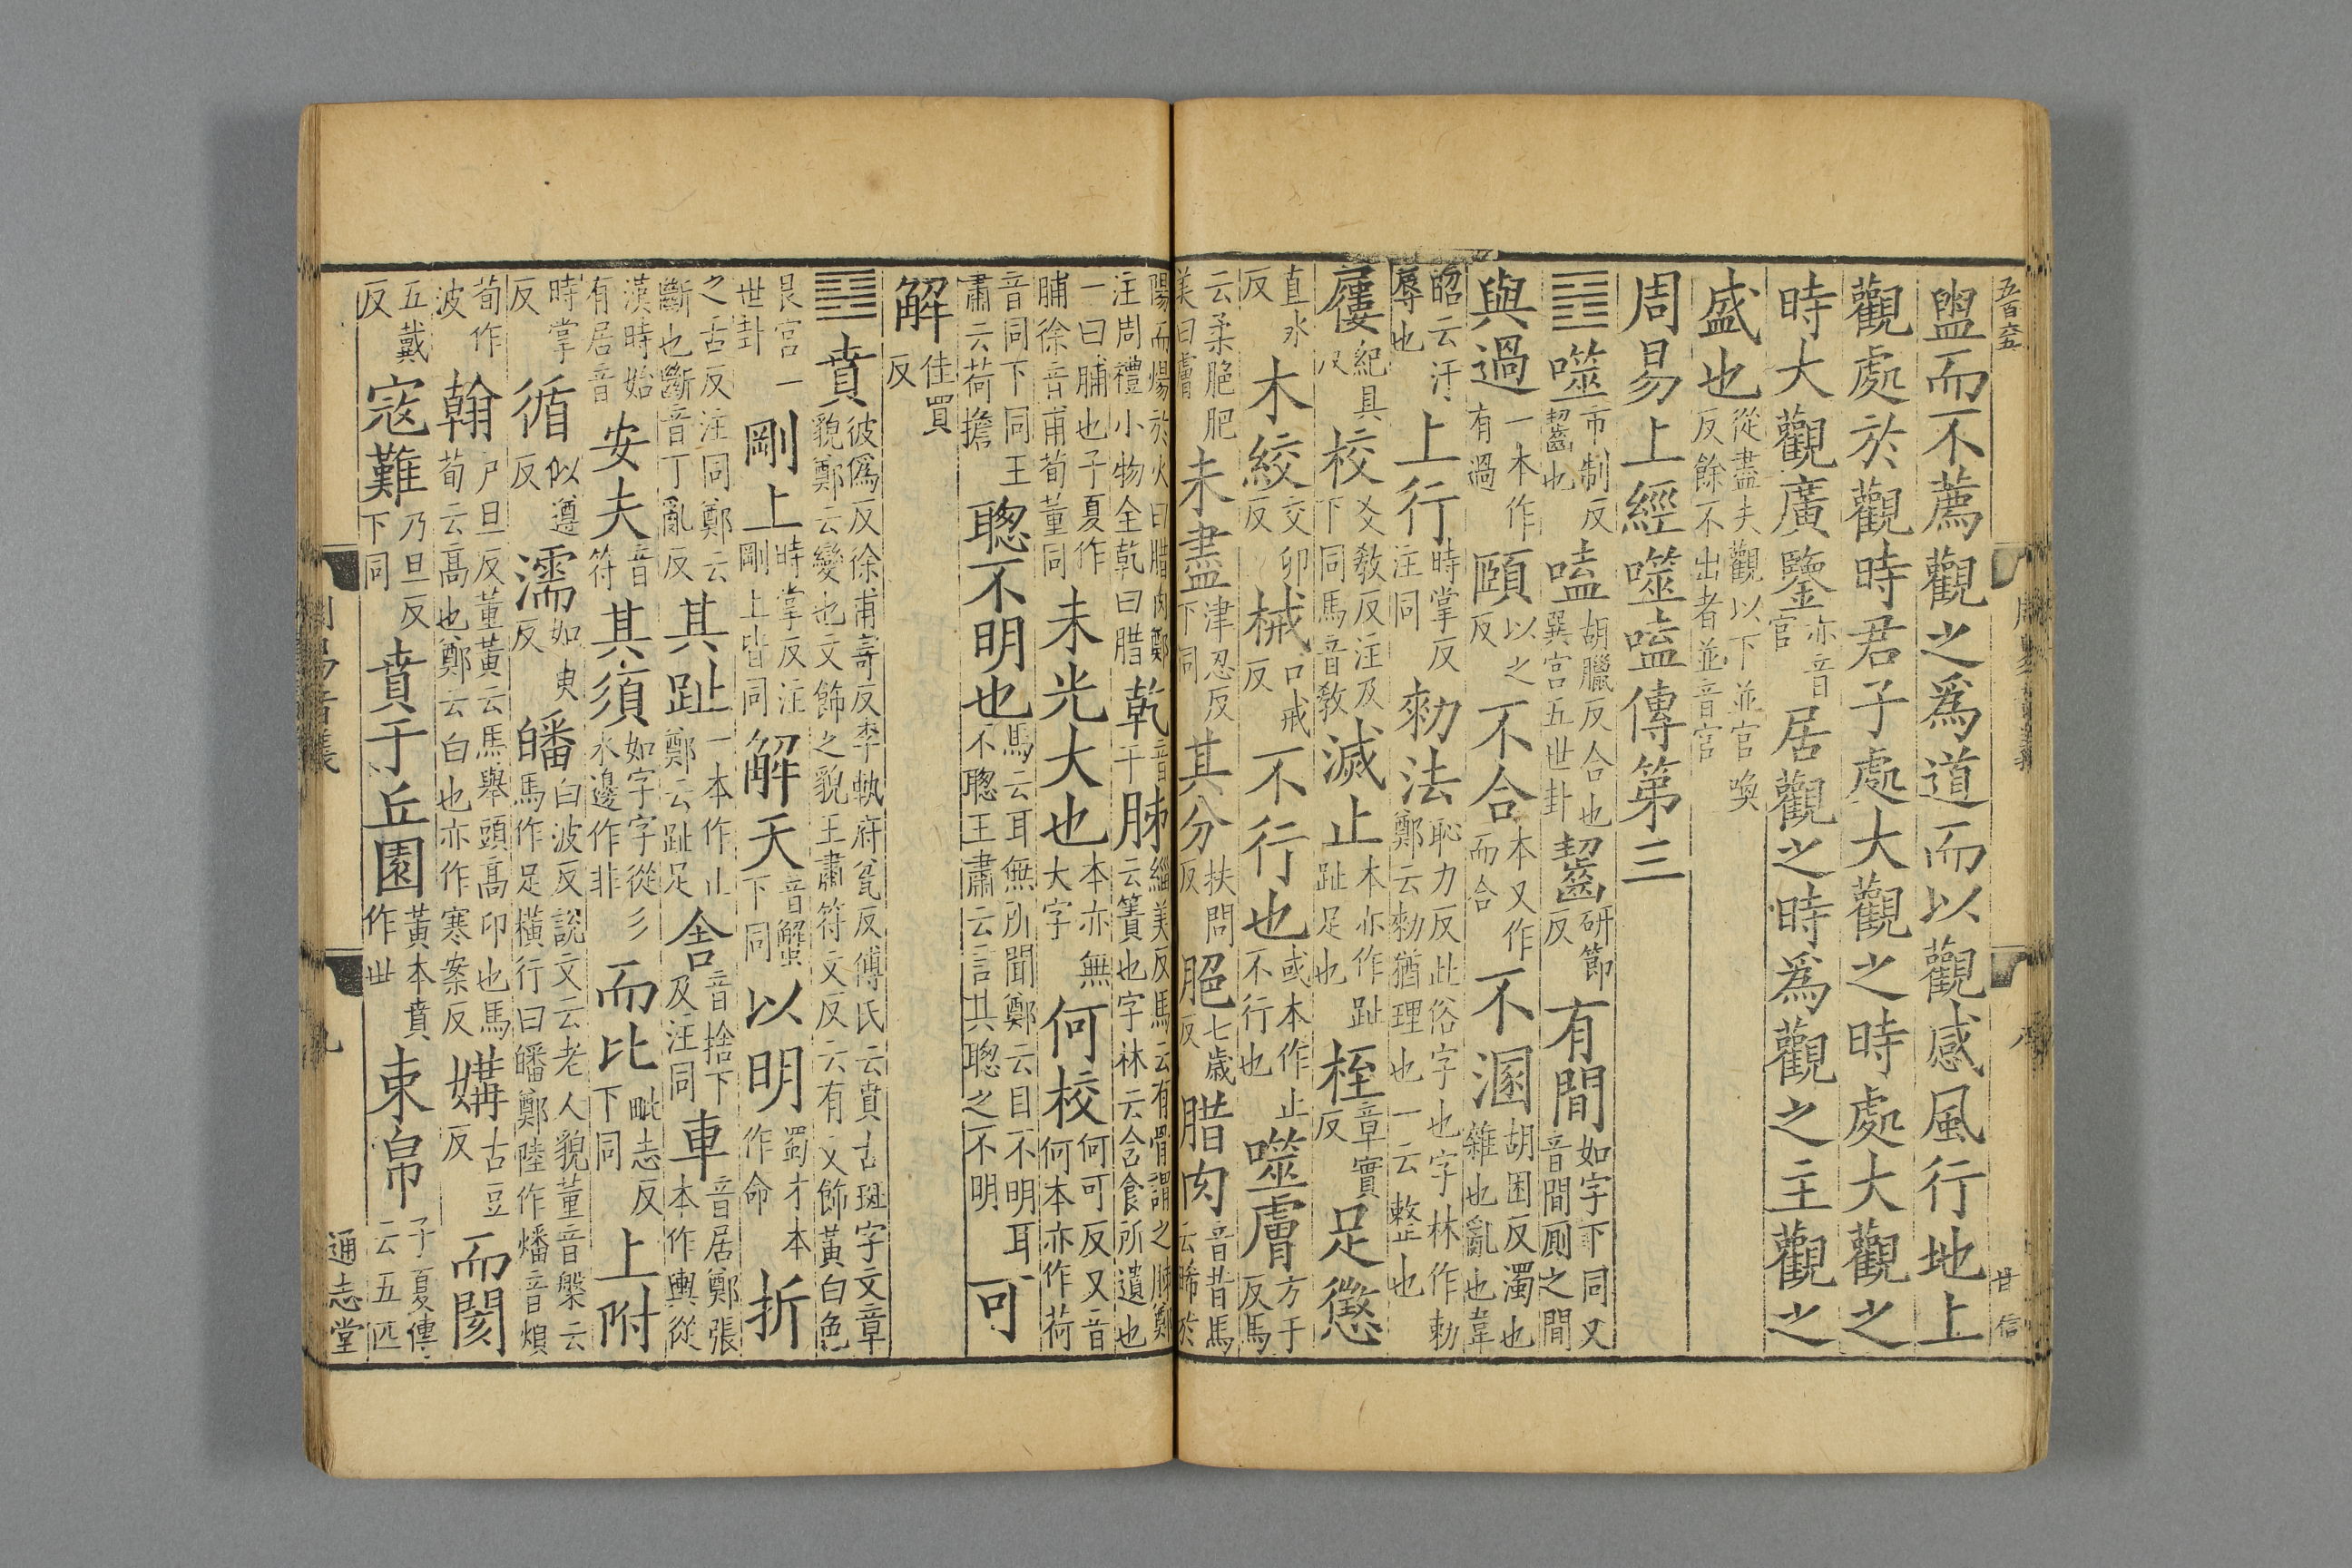 五百六五
周易音義 八
甘信
盥而不薦觀之爲道而以觀感風行地上
觀處於觀時君子處大觀之時處大觀之
時大觀廣鑒亦音官居觀之時爲觀之主觀之
盛也從盡夫觀以下並官喚反餘不出者並音官
周易上經噬嗑傳第三
䷔噬市制反齧也嗑胡臘反合也巽宮五世卦齧研節反有間如字下同又音間厠之間
與過一本作有過頤以之反不合本又作而合不溷胡困反濁也雜也亂也韋
昭云汙辱也上行時掌反注同勑法恥力反此俗字也字林作勅鄭云勑猶理也一云整也
屨紀具反校爻敎反注及下同馬音敎滅止本亦作趾趾足也桎章實反足懲
直冰反木絞交卯反械口戒反不行也或本作止不行也噬膚方于反馬
云柔脆肥美曰膚未盡津忍反下同其分扶問反脃七歲反腊肉音昔馬云晞於
陽而煬於火曰腊肉鄭注周禮小物全乾曰腊乾音干胏緇美反馬云有骨謂之胏鄭云簀也字林云含食所遺也
一曰脯也子夏作脯徐音甫荀董同未光大也本亦無大字何校何可反又音何本亦作荷
音同下同王肅云荷擔聦不明也馬云耳無所聞鄭云目不明耳不聦王肅云言其聦之不明可
解佳買反
䷕賁彼僞反徐甫寄反李軌府瓫反傅氏云賁古斑字文章貌鄭云變也文飾之貌王肅符文反云有文飾黃白色
艮宮一世卦剛上時掌反注剛上皆同解天音蟹下同以明蜀才本作命折
之舌反注同鄭云斷也斷音丁亂反其趾一本作止鄭云趾足舍音捨下及注同車音居鄭張本作輿從
漢時始有居音安夫音符其須如字字從彡水邊作非而比毗志反下同上附
時掌反循似遵反濡如臾反皤白波反說文云老人貌董音槃云馬作足橫行曰皤鄭陸作燔音煩
荀作波翰戶旦反董黃云馬舉頭高卬也馬荀云高也鄭云白也亦作寒案反媾古豆反而閡
五戴反寇難乃旦反下同賁于丘園黃本賁作世束帛子夏傳云五匹
周易音義 九
通志堂